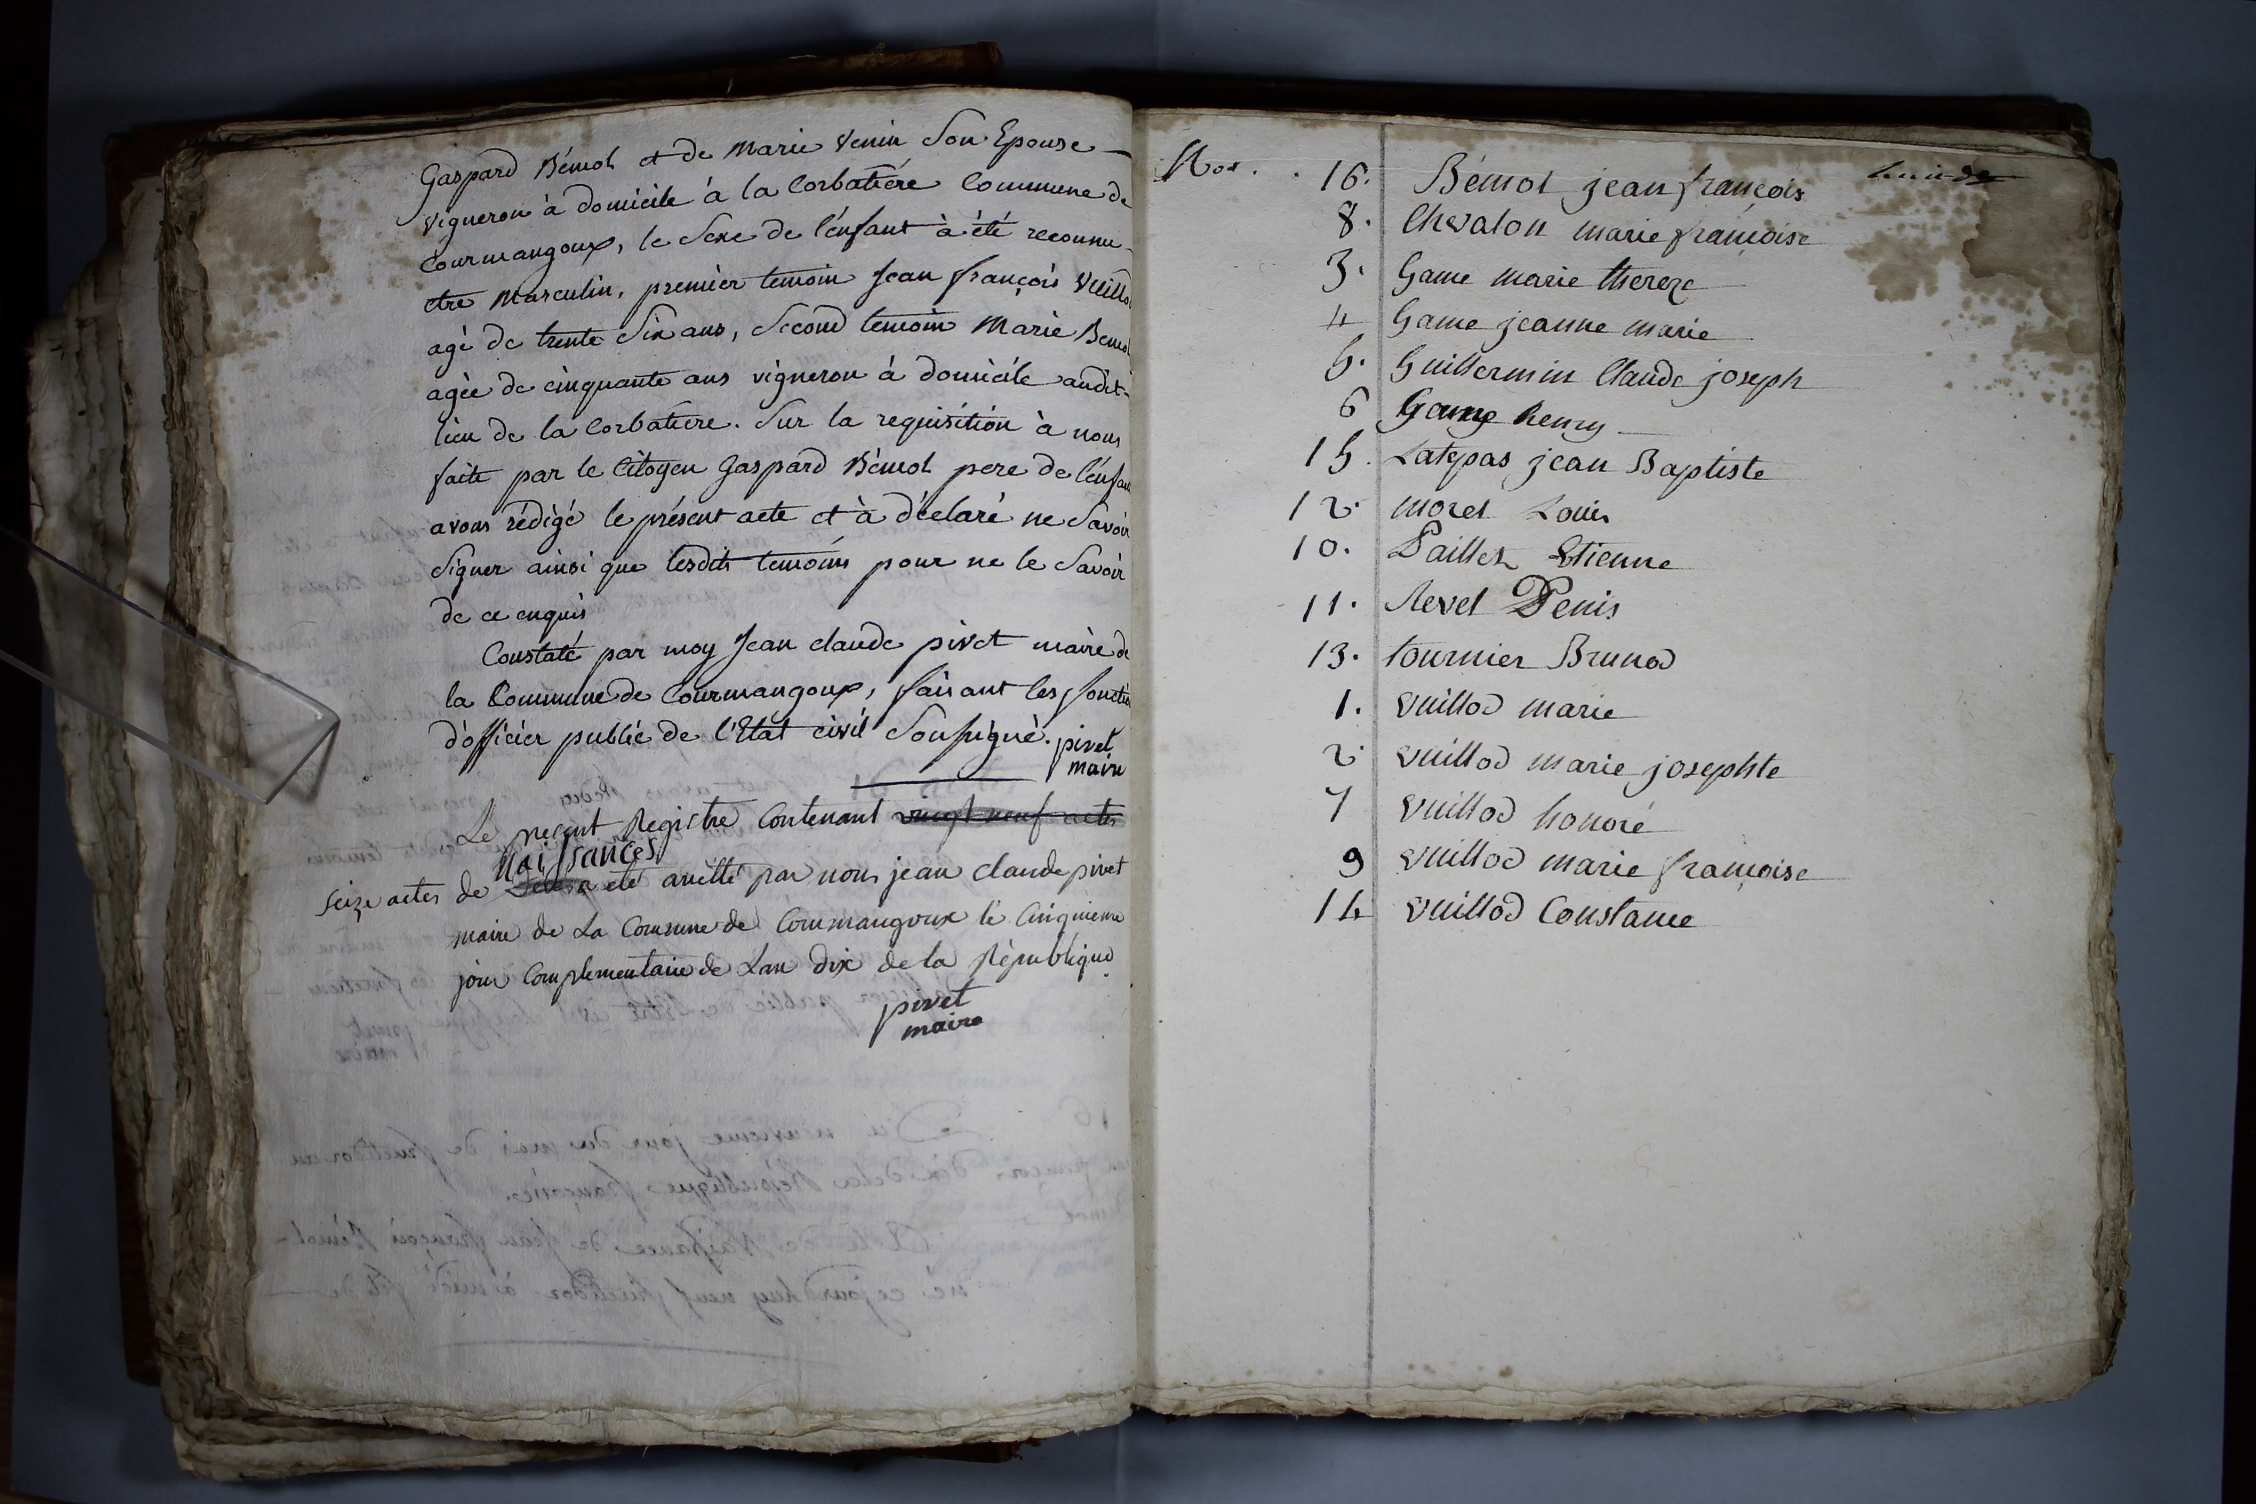 Gaspard Bémol et de Marie Venin Son Epouse
vigneron à domicile à la Corbatiére Commune de
Courmangoux, le Sexe de l'énfant à été reconnu
etre Masculin, premiér temoin Jean françois Vuillo
agé de trente Six ans, Second temoin Marie Bemol
agèe de cinquante ans vigneron à domicile audit-
lieu de la Corbatiere. Sur la requisition à nous
faite par le Citoyen Gaspard Bémol pere de l'énfan
avons rédigé le présent acte et à déclaré ne Savoir
Signer ainsi que lesdits temoins pour ne le Savoir
de ce enquis
Constaté par moy Jean claude pivet maire de
la Commune de Courmangoux, faisant les fonctio
d'officiér public de l'Etat civil Soussigné. pivet
maire
Le present Registre Contenant vingt neuf actes
Naissances
seize actes de été arrêtté par nous jean claude pivet
maire de La Commune de Courmangoux le Cinquieme
jour Complementaire de Lan dix de la République
pivet
maire
Nos. . 16. Bémol jean françois
8. Chevalon marie françoise
3. Game marie thereze
4 Game jeanne marie
5. Guillermin Claude joseph
6 Game henry
15. Latepas jean Baptiste
12. morel Louis
10. Paillet Etienne
11. Revel Denis
13. tournier Bruno
1. vuillod marie
2. vuillod marie josephte
7 vuillod honoré
9 vuillod marie françoise
14 vuillod Constance